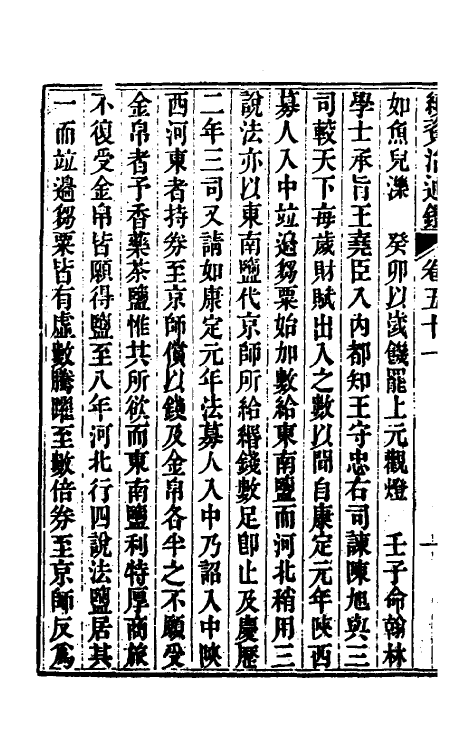 續資治通鑑 卷五十一
如魚兒濼　癸卯以歲饑罷上元觀燈　壬子命翰林
學士承旨王堯臣入內都知王守忠右司諫陳旭與三
司較天下每歲財賦出入之數以聞自康定元年陝西
募人入中竝邊芻粟始加數給東南鹽而河北稍用三
說法亦以東南鹽代京師所給緡錢數足卽止及慶歷
二年三司又請如康定元年法募人入中乃詔入中陝
西河東者持券至京師償以錢及金帛各半之不願受
金帛者予香藥茶鹽惟其所欲而東南鹽利特厚商旅
不復受金帛皆願得鹽至八年河北行四說法鹽居其
一而竝邊芻粟皆有虛數騰躍至數倍券至京師反爲